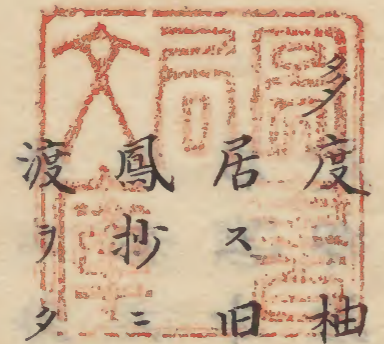 多度柚
居ス旧
鳳抄ニ
渡ヲタ